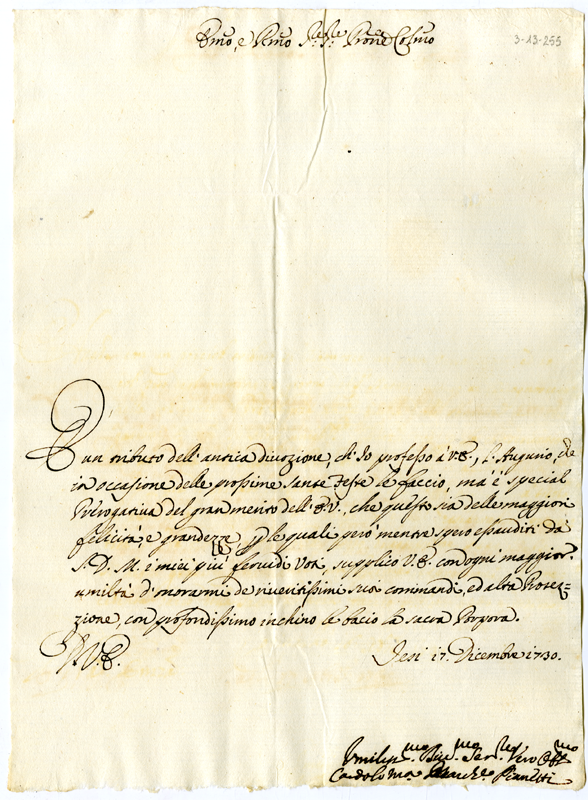 Emo, e Rmo Sig.re Sig.re Prone Colmo
3-13-255
È un tributo dell'antica divozione, ch'Io professo à V.E., l'Augurio, che
in occasione delle prossime sante Feste le faccio, ma è special
Prerogativa del gran merito dell'E.V., che questo sia delle maggiori
felicità, e grandezze, p le quali però mentre spero essauditi da
S. D. M. i miei più fervidi Voti, supplico V.E. con ogni maggior
umiltà d'onorarmi de riveritissimi suoi commandi, ed alta Protez=
zione, con profondissimo inchino le bacio la sacra Porpora.
D.V.E.
Jesi 17. Dicembre 1730.
Umiliss.mo Div.mo Ser.re Vero Obb.mo
Cardolo Ma. March.e Pianetti